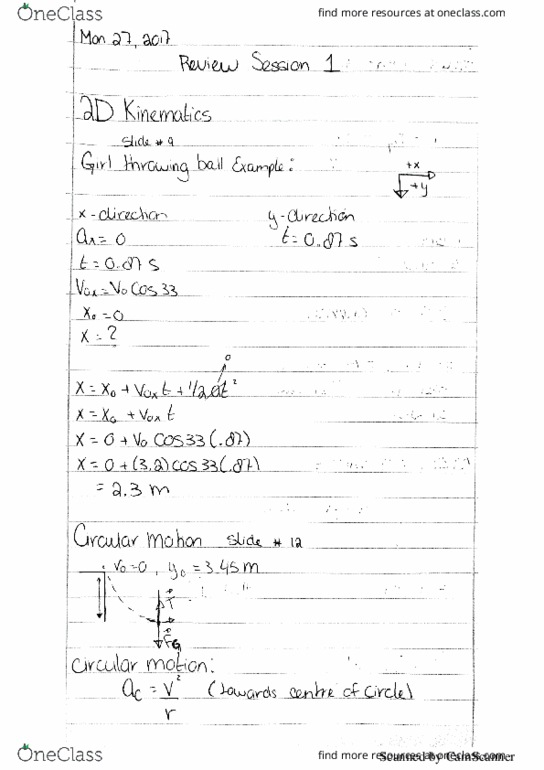 OneClass
find more resources at oneclass.com
Mon 27, 2017
Review Session 1
2D Kinematics
slide # 9
Girl throwing ball Example:
+x
+y
x-direction
y-direction
ax = 0
t = 0.87 s
t = 0.87 s
Vox = Vo Cos 33
x₀ = 0
x = ?
0
x = x₀ + Vox t + 1/2 at²
x = x₀ + Vox t
x = 0 + Vo COS 33 (.87)
x = 0 + (3.2) cos 33 (.87)
= 2.3 m
Circular Motion slide # 12
Vo = 0, y₀ = 3.45 m
T
FG
Circular motion:
ac = v²/r (towards centre of circle)
OneClass
find more resources at oneclass.com
Scanned by CamScanner